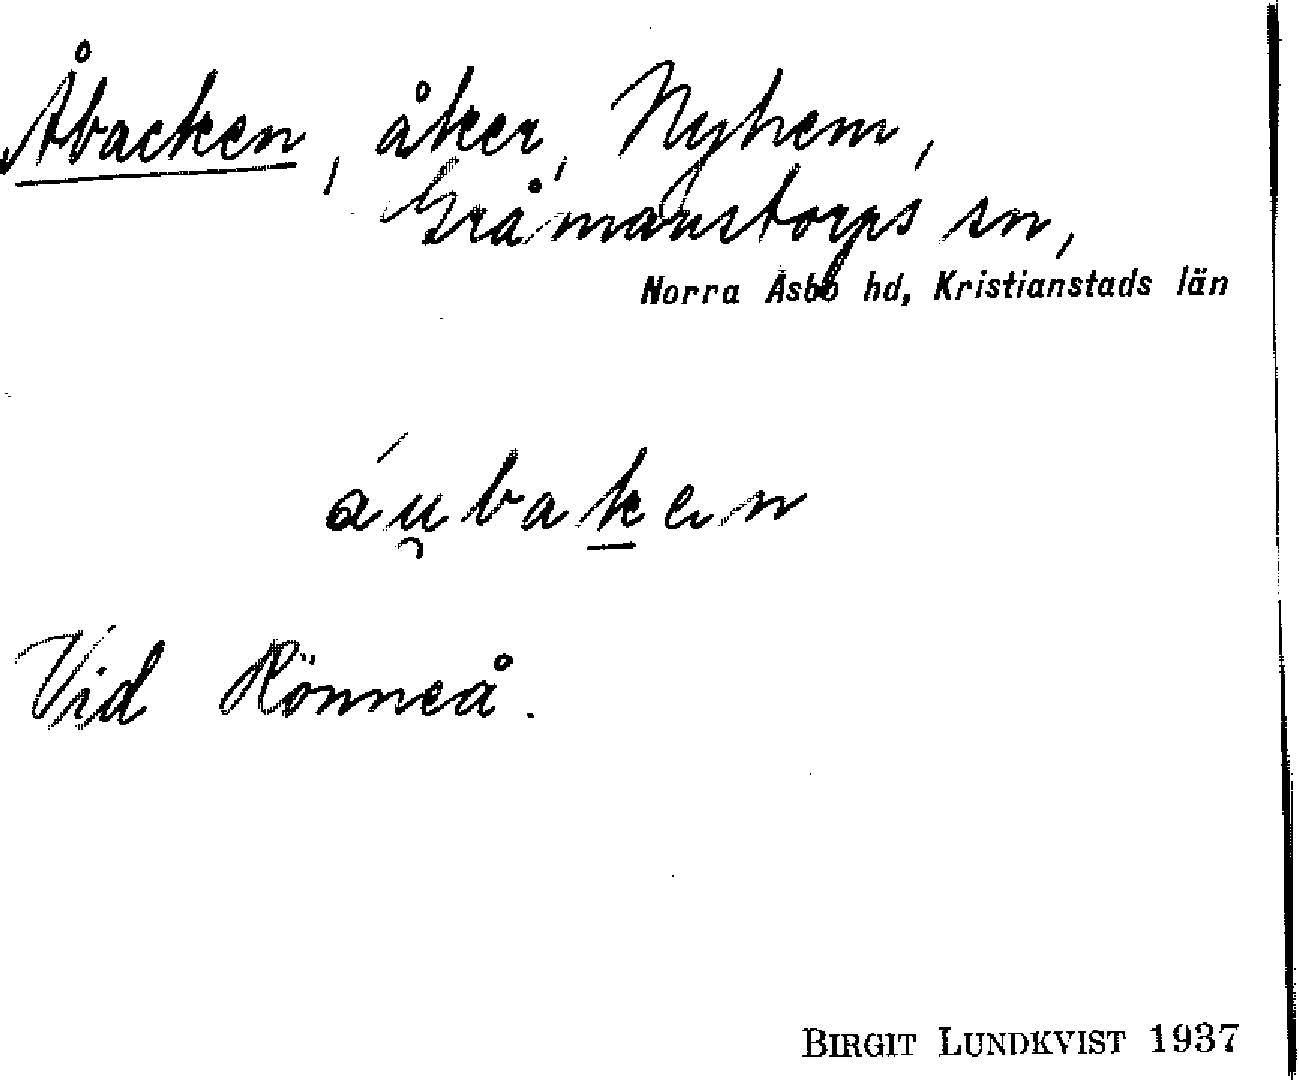 Åbacken, åker, Nyhem,
Gråmanstorps sn,
Norra Åsbo hd, Kristianstads län
áu̯baḵen
Vid Rönneå.
BIRGIT LUNDKVIST 1937